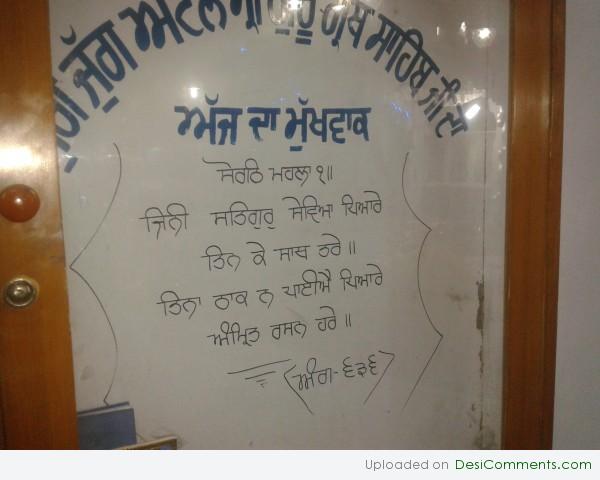 ਜੁੱਗੋ ਜੁੱਗ ਅਟੱਲ ਸ਼੍ਰੀ ਗੁਰੂ ਗ੍ਰੰਥ ਸਾਹਿਬ ਜੀ ਦਾ
ਅੱਜ ਦਾ ਮੁੱਖਵਾਕ
ਸੋਰਠਿ ਮਹਲਾ ੧॥
ਜਿਨੀ ਸਤਿਗੁਰੁ ਸੇਵਿਆ ਪਿਆਰੇ
ਤਿਨ ਕੇ ਸਾਥ ਤਰੇ॥
ਤਿਨਾ ਠਾਕ ਨ ਪਾਈਐ ਪਿਆਰੇ
ਅੰਮ੍ਰਿਤ ਰਸਨ ਹਰੇ॥
(ਅੰਗ-੬੩੬)
Uploaded on DesiComments.com